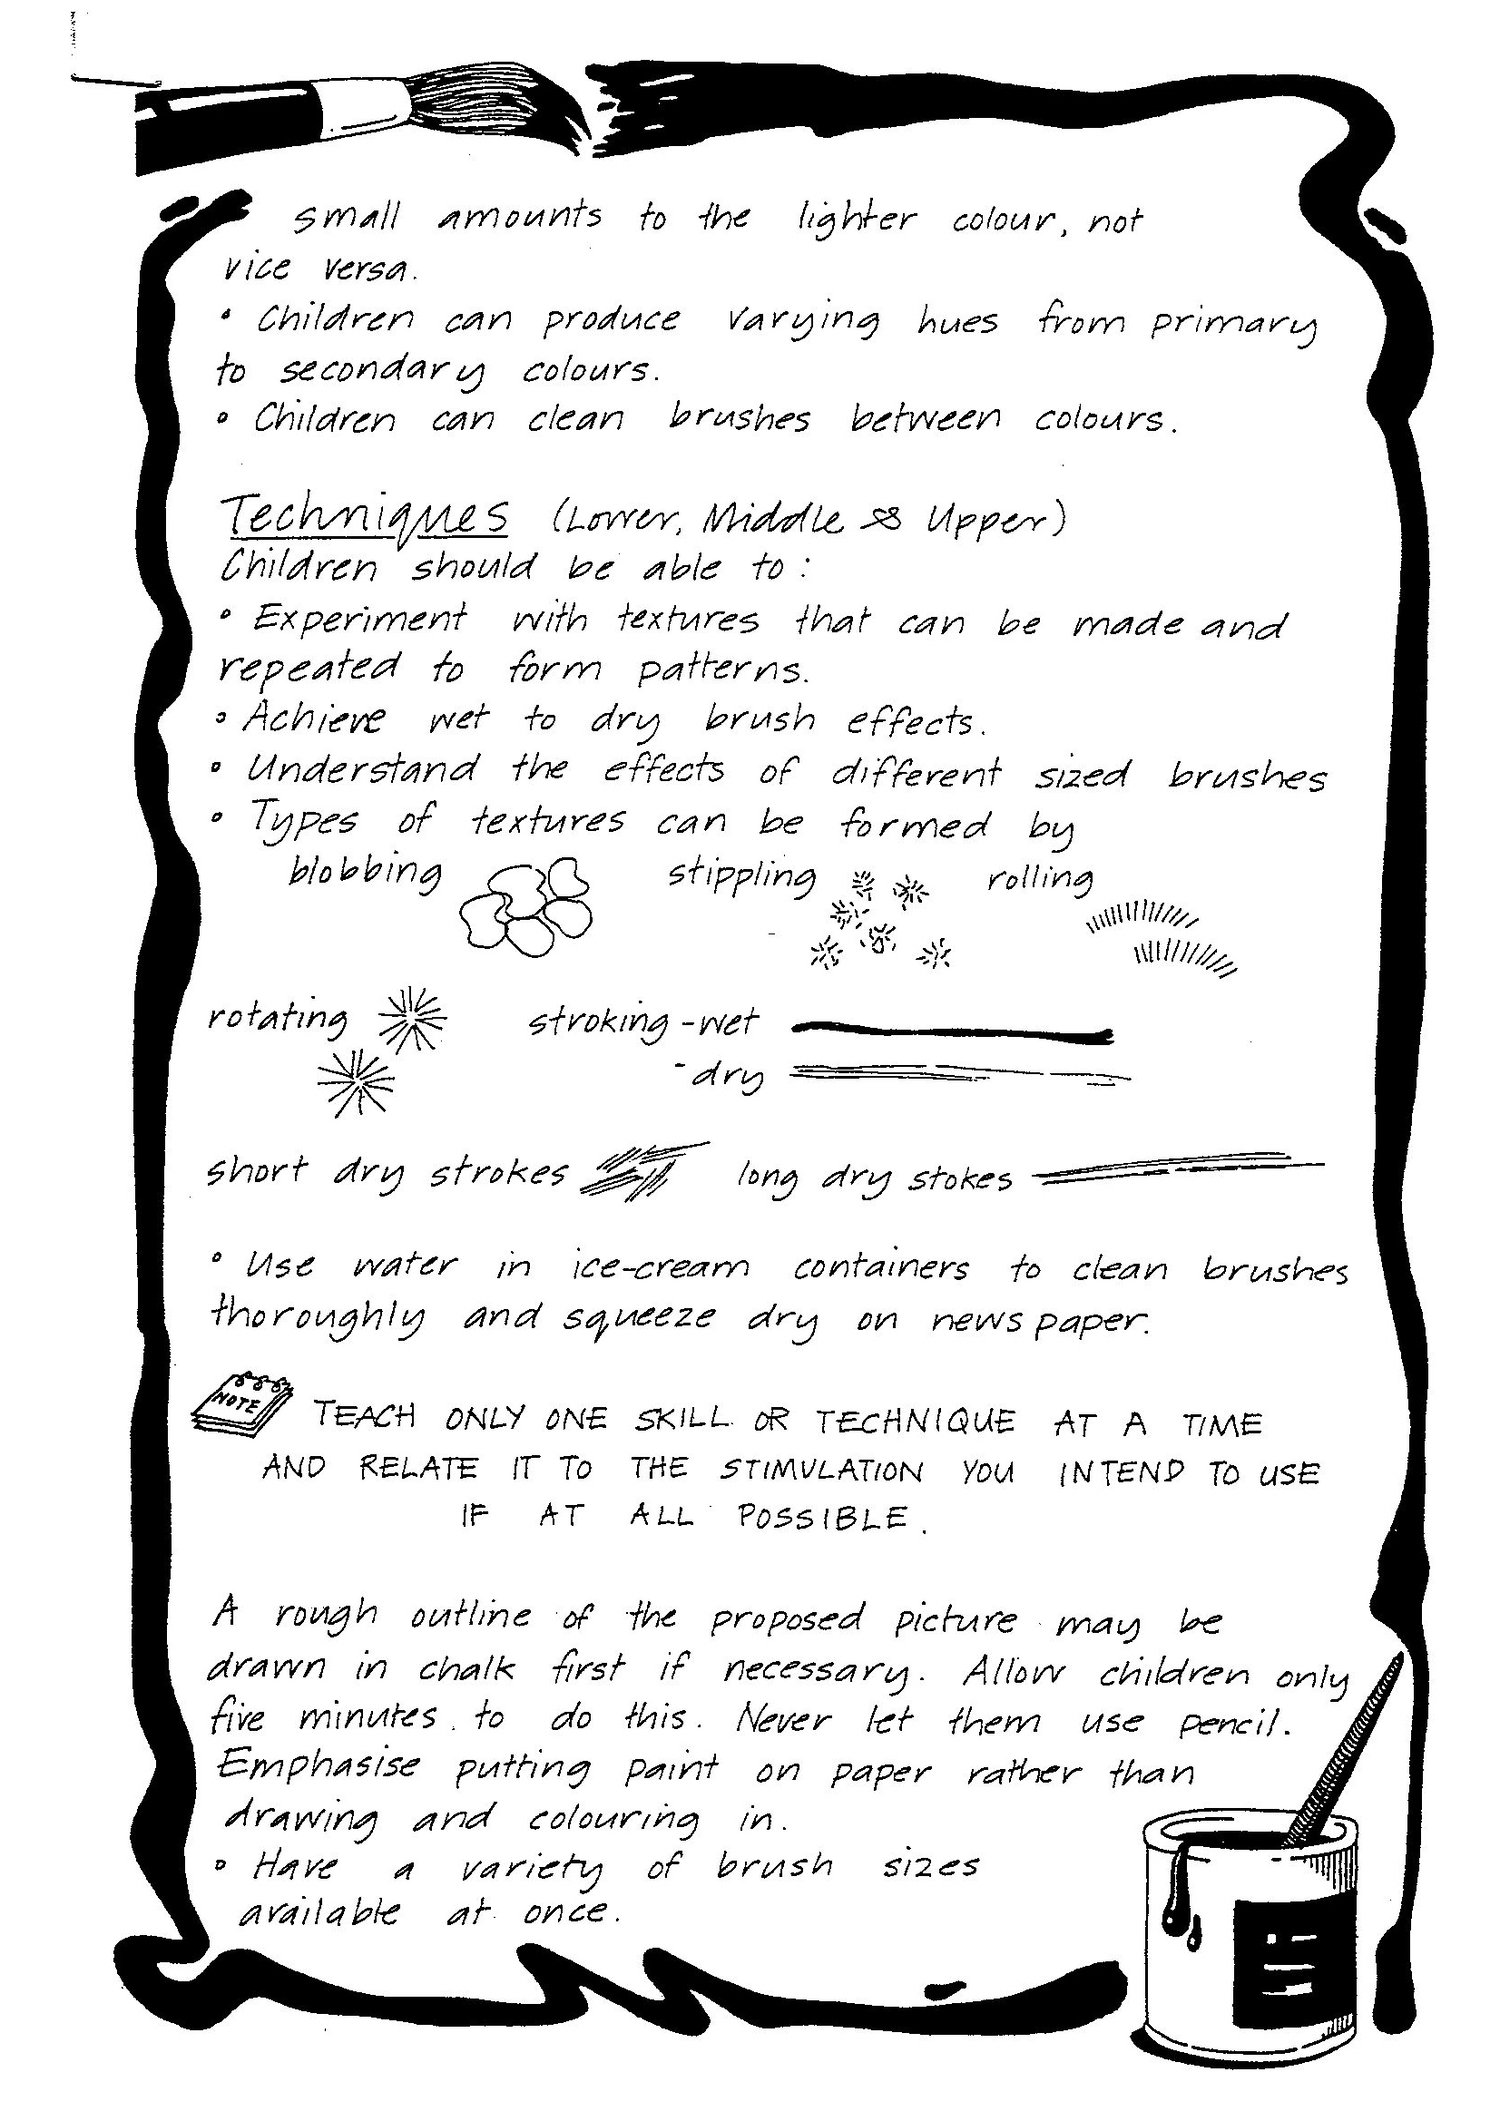 small amounts to the lighter colour, not
vice versa.
• Children can produce varying hues from primary
to secondary colours.
• Children can clean brushes between colours.
Techniques (Lower, Middle & Upper)
Children should be able to:
• Experiment with textures that can be made and
repeated to form patterns.
• Achieve wet to dry brush effects.
• Understand the effects of different sized brushes
• Types of textures can be formed by
blobbing stippling rolling
rotating stroking - wet
- dry
short dry strokes long dry stokes
• Use water in ice-cream containers to clean brushes
thoroughly and squeeze dry on newspaper.
NOTE TEACH ONLY ONE SKILL OR TECHNIQUE AT A TIME
AND RELATE IT TO THE STIMULATION YOU INTEND TO USE
IF AT ALL POSSIBLE.
A rough outline of the proposed picture may be
drawn in chalk first if necessary. Allow children only
five minutes to do this. Never let them use pencil.
Emphasise putting paint on paper rather than
drawing and colouring in.
• Have a variety of brush sizes
available at once.